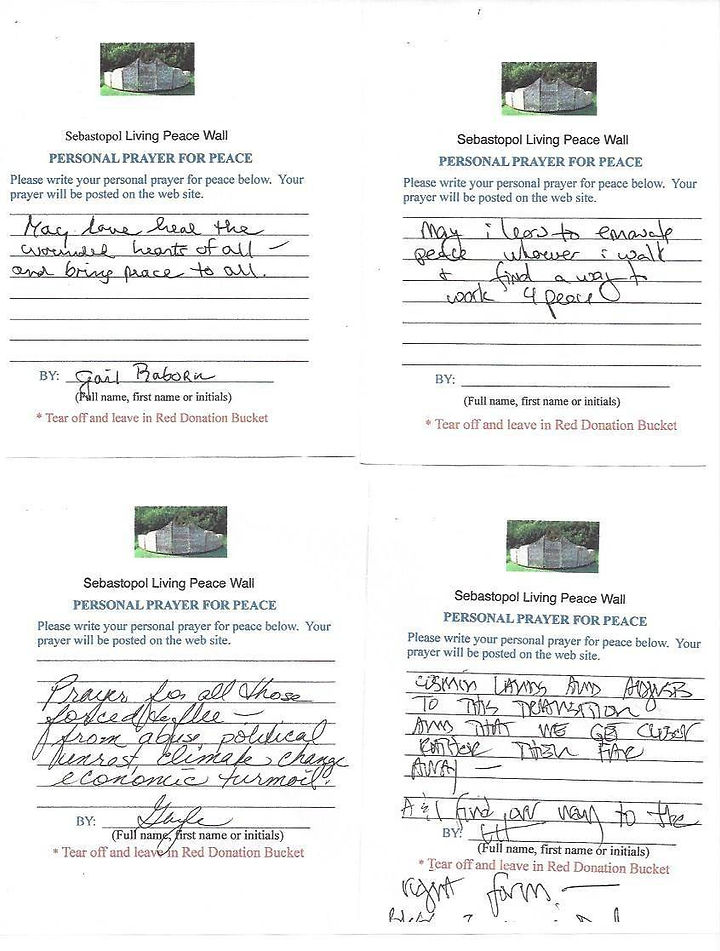 Sebastopol Living Peace Wall
PERSONAL PRAYER FOR PEACE
Please write your personal prayer for peace below. Your
prayer will be posted on the web site.
May love heal the
wounded hearts of all —
and bring peace to all.
BY: Gail Raborn
(Full name, first name or initials)
* Tear off and leave in Red Donation Bucket
Sebastopol Living Peace Wall
PERSONAL PRAYER FOR PEACE
Please write your personal prayer for peace below. Your
prayer will be posted on the web site.
May i learn to emanate
peace wherever i walk
& find a way to
work 4 peace
BY:
(Full name, first name or initials)
* Tear off and leave in Red Donation Bucket
Sebastopol Living Peace Wall
PERSONAL PRAYER FOR PEACE
Please write your personal prayer for peace below. Your
prayer will be posted on the web site.
Prayer for all those
forced to flee —
from abuse, political
unrest, climate change
economic turmoil.
BY: Gayle
(Full name, first name or initials)
* Tear off and leave in Red Donation Bucket
Sebastopol Living Peace Wall
PERSONAL PRAYER FOR PEACE
Please write your personal prayer for peace below. Your
prayer will be posted on the web site.
AND
TO THIS TRANSITION
AND THAT WE GET CLOSER
RATHER THEN FAR
AWAY —
find our way to the
BY:
(Full name, first name or initials)
* Tear off and leave in Red Donation Bucket
right form. —